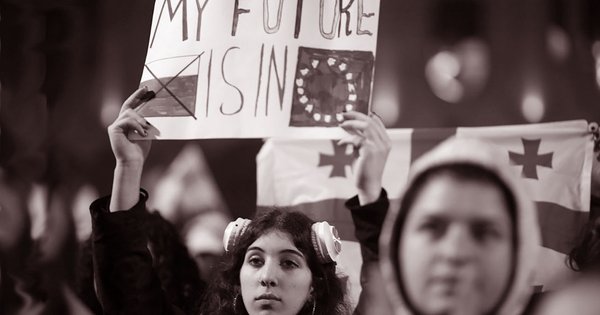 MY FUTURE
IS IN